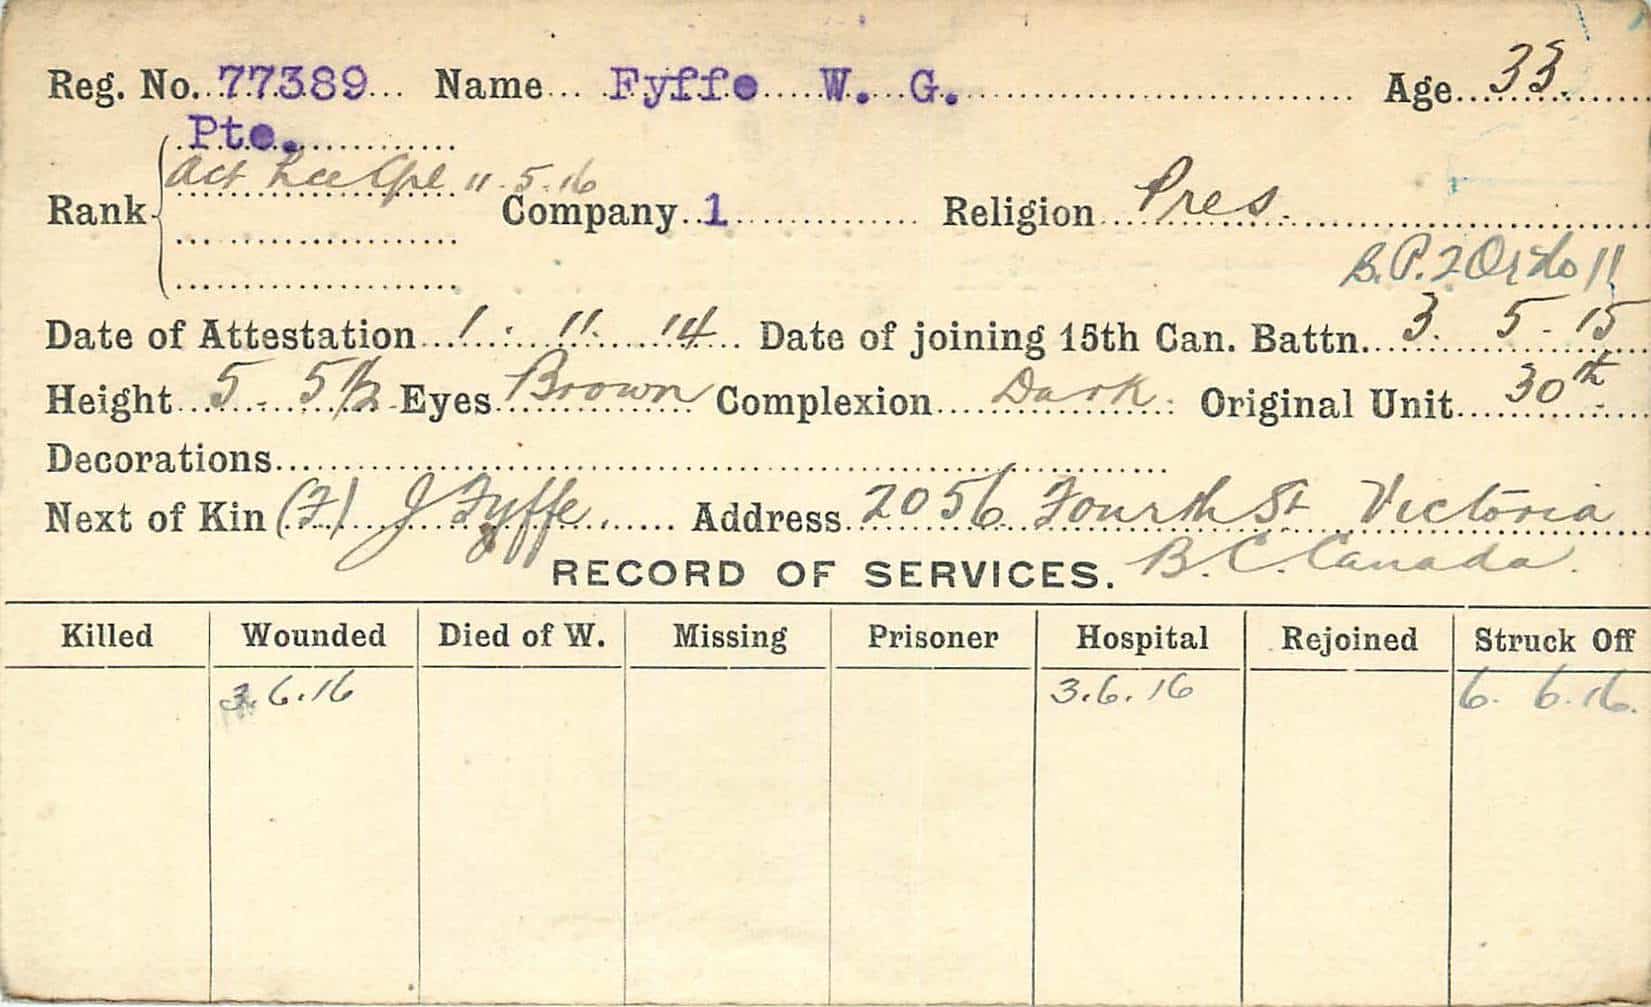 Reg. No. 77389 Name Fyffe W. G. Age 33.
Pte.
Act Lce Cpl 11.5.16
Rank Company 1 Religion Pres.
B.P. 2 Ord 11
Date of Attestation 1. 11. 14 Date of joining 15th Can. Battn. 3. 5. 15
Height 5. 5 1/2 Eyes Brown Complexion Dark Original Unit 30th
Decorations
Next of Kin (F) J Fyffe Address 2056 Fourth St Victoria
B.C. Canada.
RECORD OF SERVICES.
Killed Wounded Died of W. Missing Prisoner Hospital Rejoined Struck Off
3.6.16 3.6.16 6.6.16.